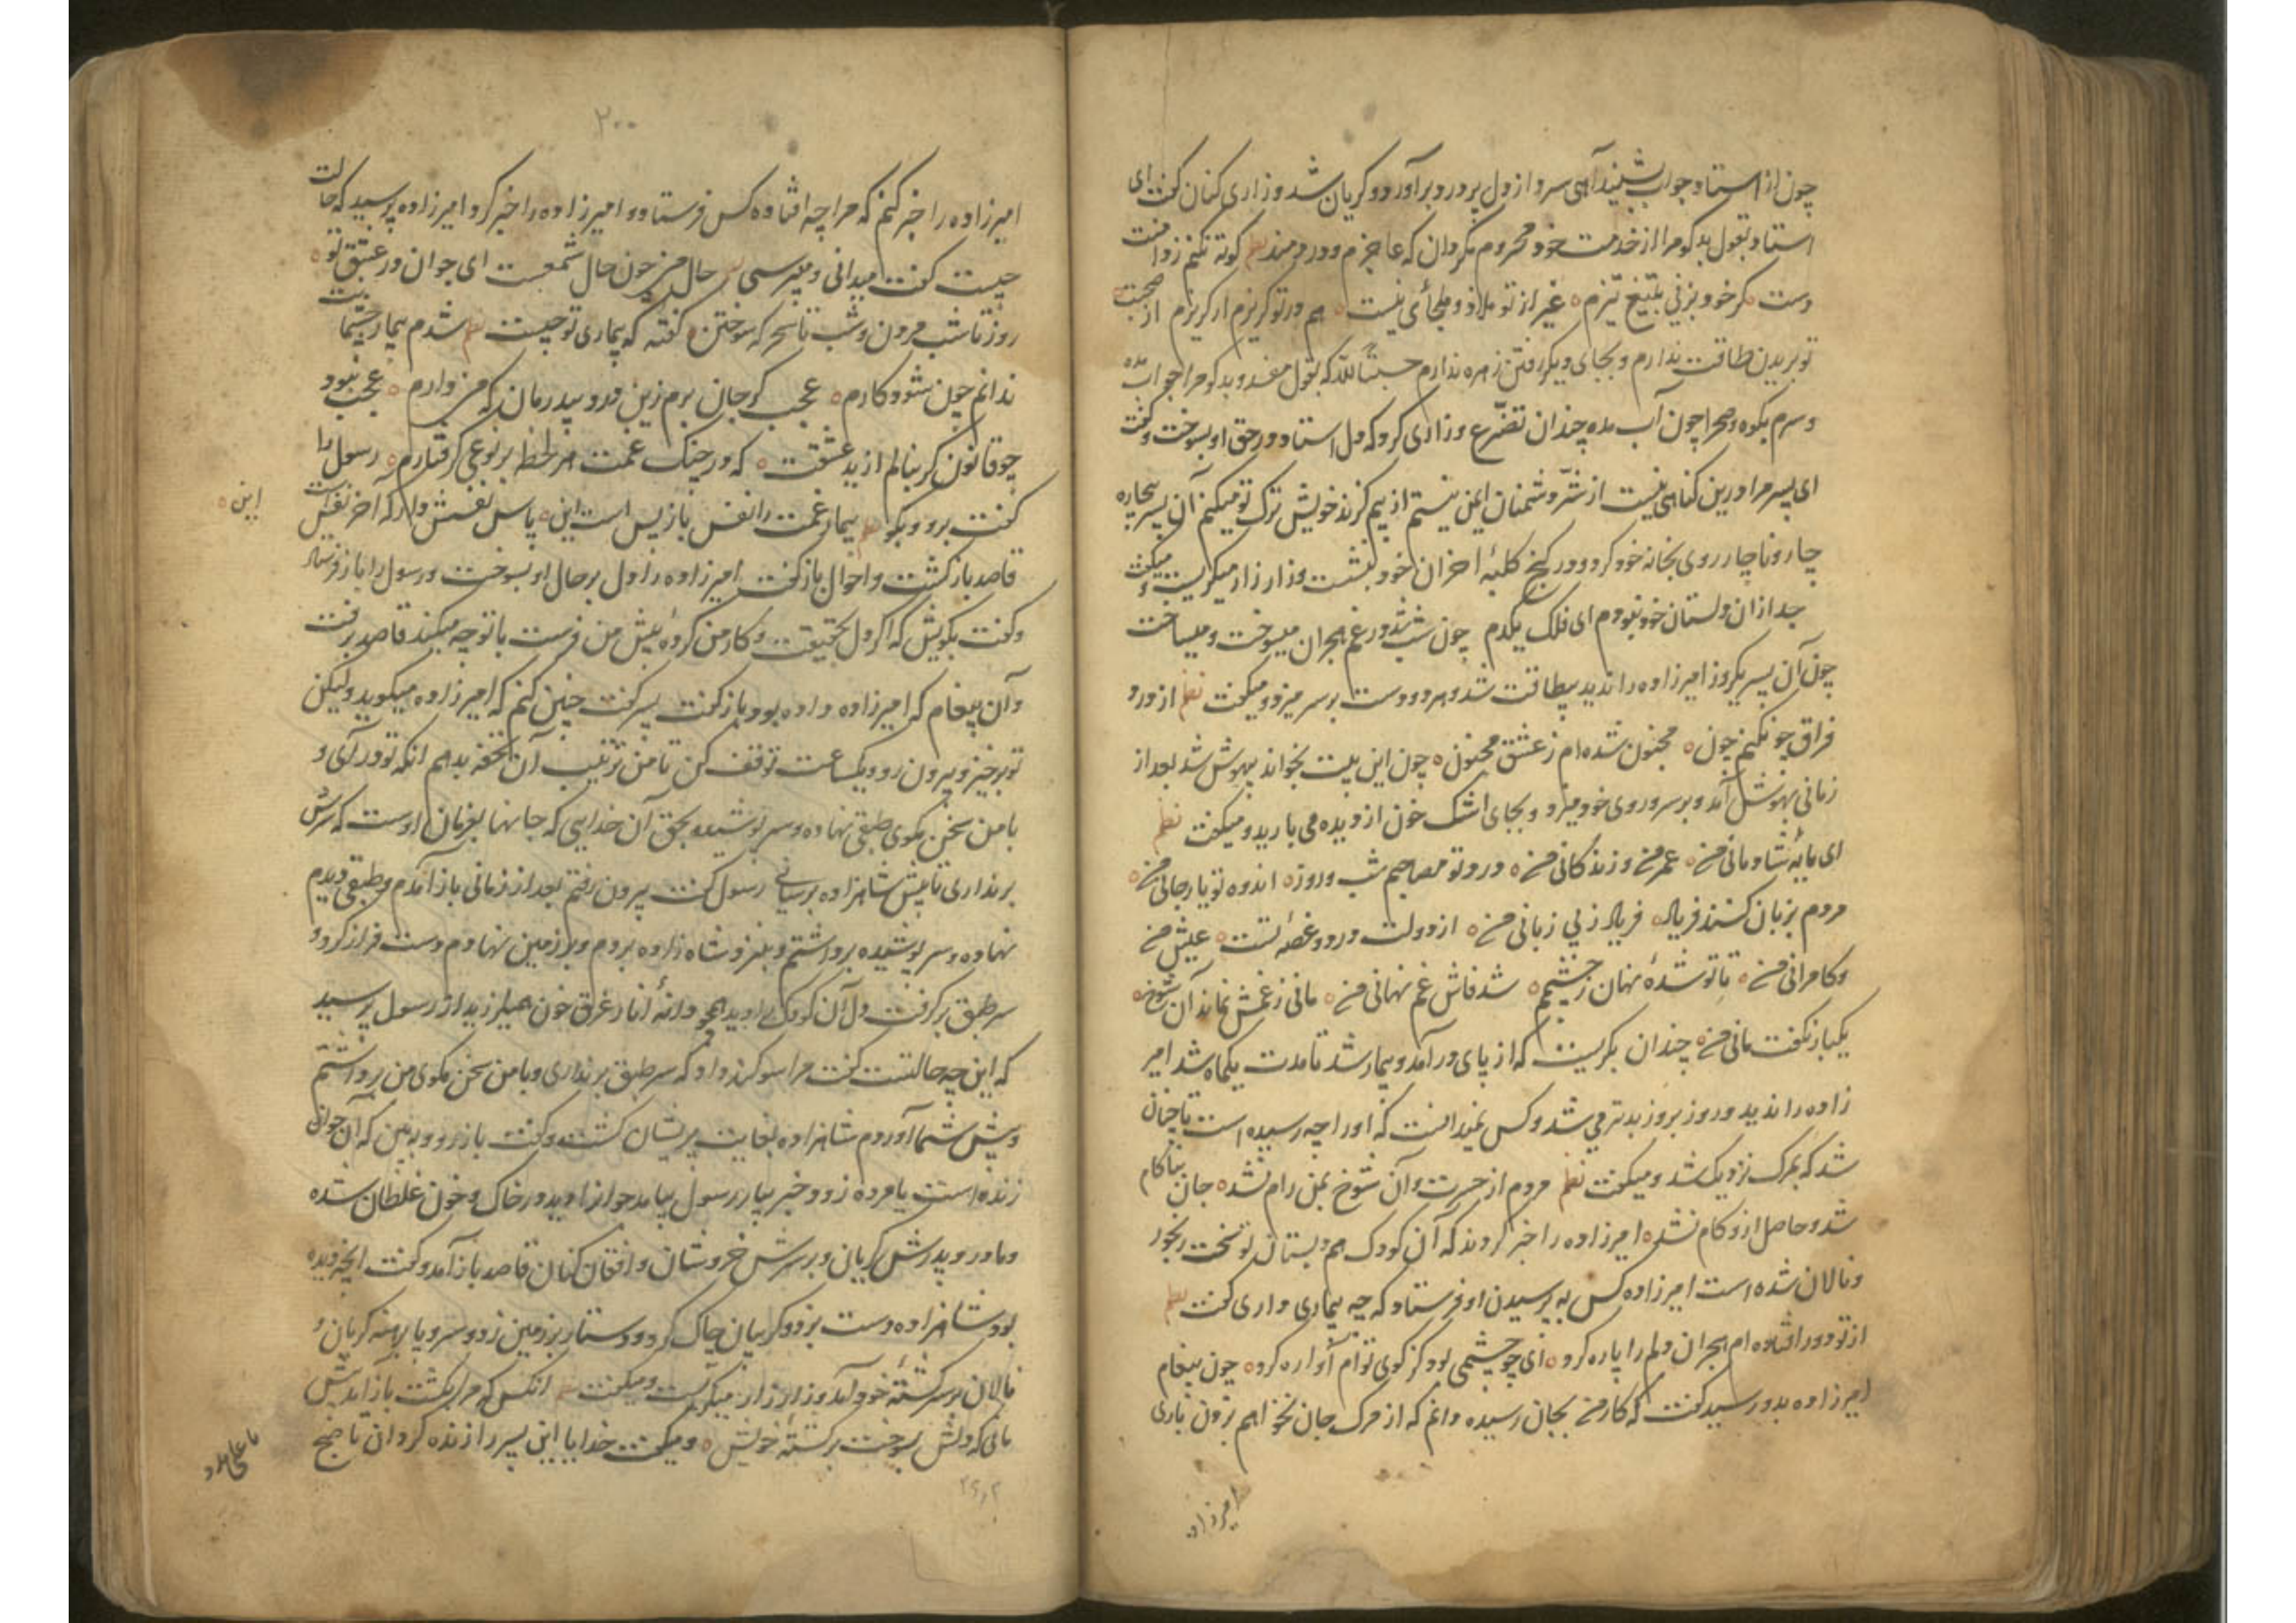 چون از استاد جواب بشنید آهی سرد از دل پر درد برآورد و کریان شد و زاری کنان کفت ای
استاد بقول بدکو مرا از خدمت خود محروم مکردان که عاجزم و دردمند نظم کوته نکنم ز دامنت
دست کر خود بزنی بتیغ تیزم غیر از تو ملاذ و ملجائی نیست هم در تو کریزم ار کریزم از صحبت
تو بریدن طاقت ندارم و بجای دیکر رفتن زهره ندارم حسبتا لله که بقول مفسد و بدکو مرا جواب مده
و سرم بکوه و صحرا چون آب مده چندان تضرع و زاری کرد که دل استاد در حق او بسوخت و کفت
ای پسر مرا درین کناهی نیست از شر دشمنان ایمن نیستم از بیم کزند خویش ترک تو میکنم آن پسر بیچاره
چار و ناچار روی بخانه خود کرد و در کنج کلبهٔ احزان خود بنشست و زار زار میکریست و میکفت
جدا زان دلستان خود نبودم ای فلک یکدم چون شب شد در غم هجران میسوخت و میساخت
چون آن پسر یکروز امیرزاده را ندید بیطاقت شد و هر دو دست بر سر میزد و میکفت نظم از درد
فراق چونکنم چون مجنون شده‌ام ز عشق مجنون چون این بیت بخواند بیهوش شد بعد از
زمانی بهوش آمد و بر سر و روی خود میزد و بجای اشک خون از دیده می بارید و میکفت نظم
ای مایهٔ شادمانی من عمر من و زندکانی من درد تو مصاحبم شب و روز اندوه تو یار جانی من
مردم بزبان کنند فریاد فریاد ز بی زبانی من از دولت درد و غصهٔ تست عیش من
و کامرانی من تا تو شدهٔ نهان ز چشمم شد فاش غم نهانی من مانی ز غمش نماند آن شوخ
یکبار نکفت مانی من چندان بکریست که از پای درآمد و بیمار شد تا مدت یکماه شد امیر
زاده را ندید و روز بروز بدتر می شد و کس نمیدانست که او را چه رسیده است تا چنان
شد که بمرک نزدیک شد و میکفت نظم مردم از حسرت و آن شوخ بمن رام نشد جان بناکام
شد و حاصل ازو کام نشد امیرزاده را خبر کردند که آن کودک هم دبستان تو سخت رنجور
و نالان شده است امیرزاده کس به پرسیدن او فرستاد که چه بیماری داری کفت نظم
از تو دور افتاده‌ام هجران دلم را پاره کرد ای چو چشمی بود کز کوی توام آواره کرد چون پیغام
امیرزاده بدو رسید کفت که کار من بجان رسیده و دانم که از مرک جان نخواهم بردن باری
امیرزاده
۲۰۰
امیرزاده را خبر کنم که مرا چه افتاده کس فرستاد و امیرزاده را خبر کرد امیرزاده پرسید که حالت
چیست کفت میدانی و میپرسی نظم حال من چون حال شمعست ای جوان در عشق تو
روز تا شب مردن و شب تا سحر که سوختن کفته که بیماری تو چیست نظم شدم بیمار چشمانت
ندانم چون شود کارم عجب کر جان برم زین درد بیدرمان که من دارم عجب نبود
چو قانون کر بنالم از ید عشقت که در چنک غمت هر لحظه بر نوعی کرفتارم رسول را
کفت برو و بکو نظم بیمار غمت را نفس بازپس است این پاس نفسش دار که آخر نفس است
این
قاصد بازکشت و احوال بازکفت امیرزاده را دل بر حال او بسوخت و رسول را باز فرستاد
و کفت بکویش که اکر دل بحقیقت در کار من کردهٔ پیش من فرست با تو چه میکند قاصد برفت
و آن پیغام که امیرزاده داده بود بازکفت پسر کفت چنین کنم که امیرزاده میکوید ولیکن
تو برخیز و بیرون رو و یکساعت توقف کن تا من ترتیب آن تحفه بدهم آنکه تو درآی و
با من سخن مکوی طبقی نهاده و سر پوشیده بحق آن خدایی که جانها بفرمان اوست که سرش
برنداری تا پیش شاهزاده برسانی رسول کفت بیرون رفتم بعد از زمانی باز آمدم و طبقی دیدم
نهاده و سر پوشیده برداشتم و بنزد شاهزاده بردم و بر زمین نهادم دست فراز کرد و
سر طبق برکرفت دل آن کودک را دید همچو دانهٔ انار غرق خون میلرزید از رسول پرسید
که این چه حالتست کفت مرا سوکند داد که سر طبق برنداری و با من سخن مکوی من برداشتم
و پیش شما آوردم شاهزاده بغایت پریشان کشت و کفت باز رو و ببین که آن جوان
زنده است یا مرده زود خبر بیار رسول بیامد جوان را دید در خاک و خون غلطان شده
و مادر و پدرش کریان و بر سرش خروشان و افغان کنان قاصد باز آمد و کفت آنچه دیده
بود شاهزاده دست بزد و کریبان چاک کرد و دستار بر زمین زد و سر و پا برهنه کریان و
نالان بر سر کشتهٔ خود آمد و زار زار میکریست و میکفت نظم آنکس که مرا بکشت باز آمد پیش
مانا که دلش بسوخت بر کشتهٔ خویش و میکفت خدایا این پسر را زنده کردان تا صبح